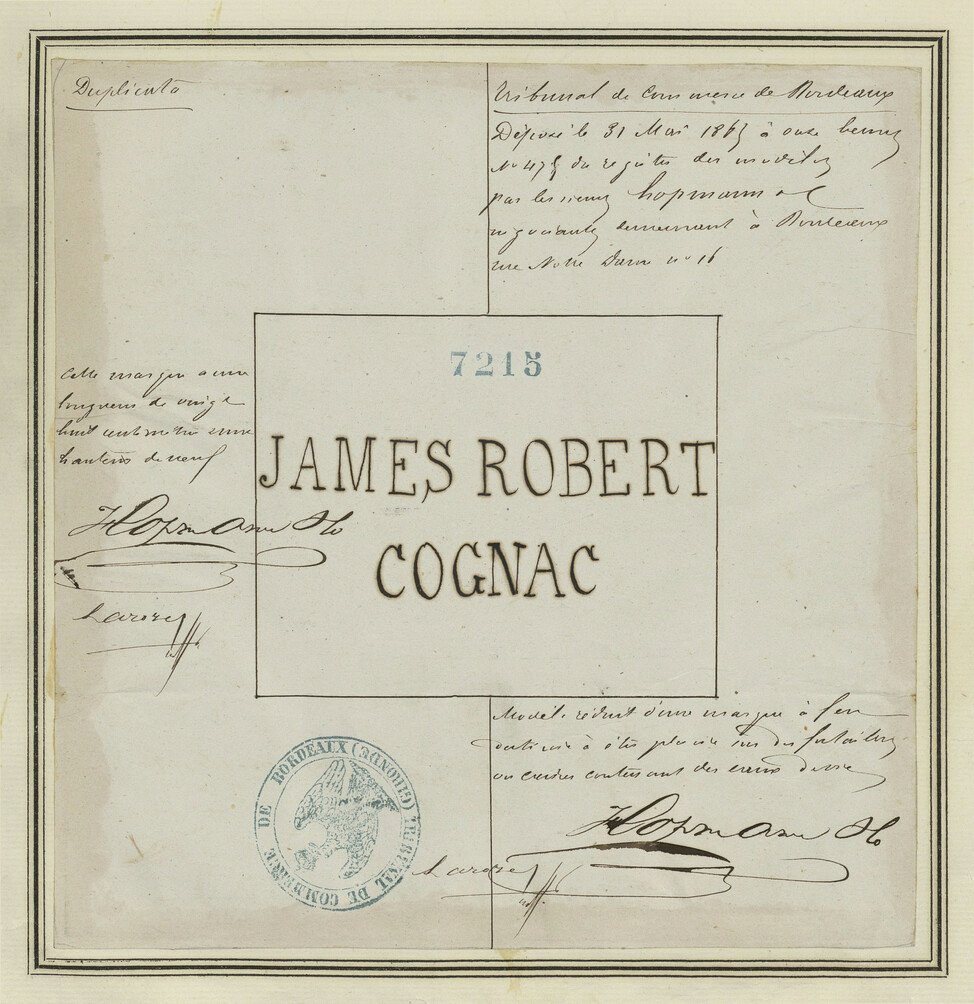 Duplicata
Tribunal de Commerce de Bordeaux
Déposé le 31 Mai 1865 à onze heures
du registre des modèles
par les sieurs Hopmann & C
négociants demeurant à Bordeaux
rue Notre Dame no 16
7215
Cette marque a une
longueur de vingt
huit centimètres sur une
hauteur de neuf
JAMES ROBERT
COGNAC
Hopmann & Co
Laroze
Modèle réduit d'une marque à feu
destinée à être placée sur des futailles
ou caisses contenant des eaux de vie
Hopmann & Co
Laroze
TRIBUNAL DE COMMERCE DE BORDEAUX (GIRONDE)